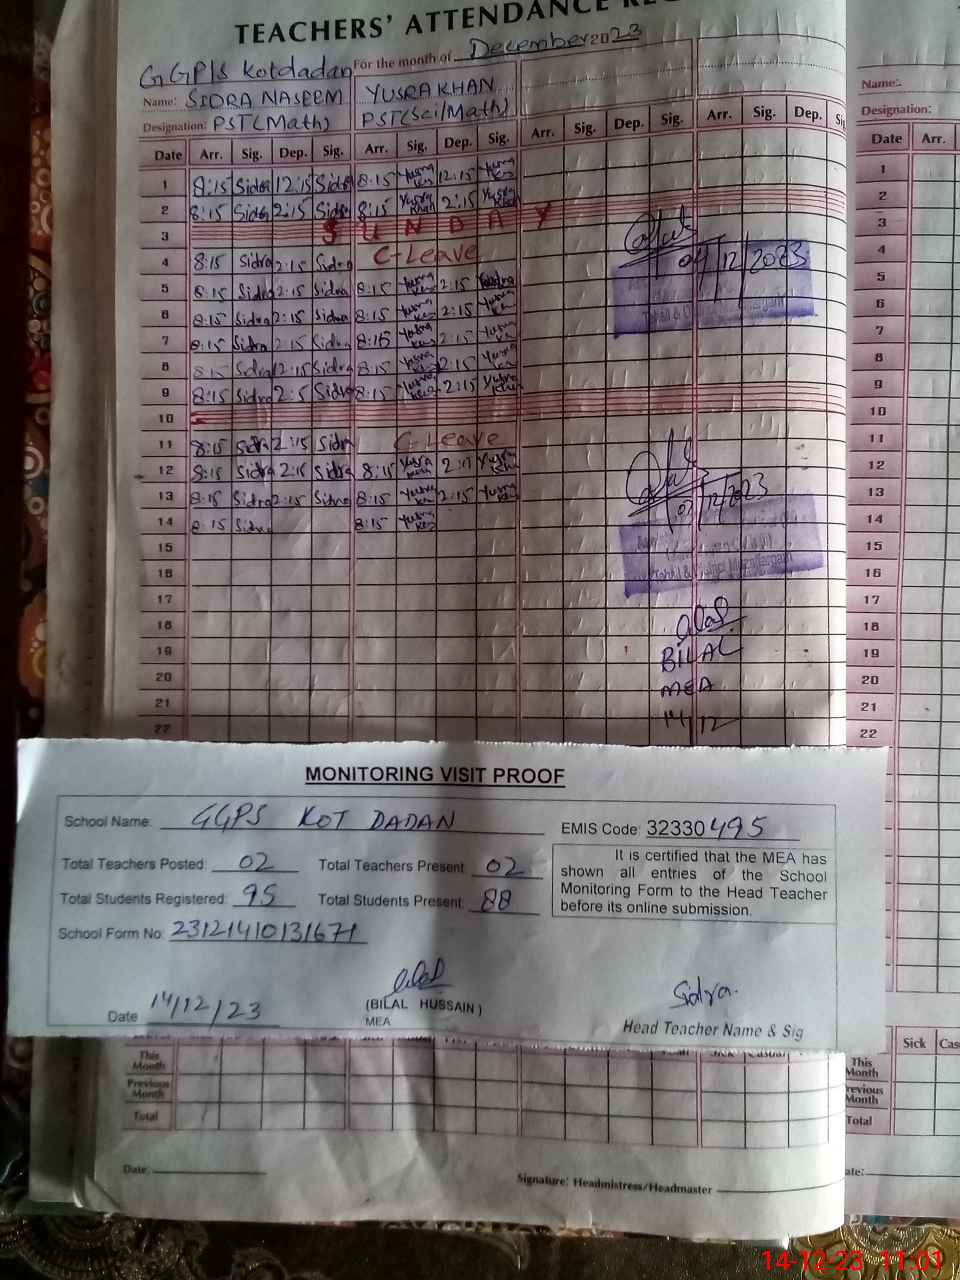 TEACHERS' ATTENDANCE
GGP/S Kotdadan For the month of December 2023
Name: SIDRA NASEEM YUSRA KHAN
Designation: PST(Math) PST(Sci/Math)
Date Arr. Sig. Dep. Sig. Arr. Sig. Dep. Sig. Arr. Sig. Dep. Sig. Arr. Sig. Dep. Si
1 8:15 Sidra 12:15 Sidra 8:15 Yusra 12:15 Yusra
2 8:15 Sidra 2:15 Sidra 8:15 Yusra Khan 2:15 Yusra
3 SUNDAY
4 8:15 Sidra 2:15 Sidra C-Leave
04/12/2023
5 8:15 Sidra 2:15 Sidra 8:15 Yusra 2:15 Yusra
6 8:15 Sidra 2:15 Sidra 8:15 Yusra 2:15 Yusra
7 8:15 Sidra 2:15 Sidra 8:15 Yusra 2:15 Yusra
8 8:15 Sidra 12:15 Sidra 8:15 Yusra 2:15 Yusra
9 8:15 Sidra 2:5 Sidra 8:15 Yusra 2:15 Yusra
10
11 8:15 Sidra 2:15 Sidra C-Leave
12 8:15 Sidra 2:15 Sidra 8:15 Yusra 2:15 Yusra
13 8:15 Sidra 2:15 Sidra 8:15 Yusra 2:15 Yusra
/12/2023
14 8:15 Sidra 8:15 Yusra
15
16
17
18
19
20
21
22
BILAL
MEA
14/12
Name:
Designation:
Date Arr.
1
2
3
4
5
6
7
8
9
10
11
12
13
14
15
16
17
18
19
20
21
22
MONITORING VISIT PROOF
School Name: GGPS KOT DADAN EMIS Code: 32330495
Total Teachers Posted: 02 Total Teachers Present: 02
Total Students Registered: 95 Total Students Present: 88
It is certified that the MEA has
shown all entries of the School
Monitoring Form to the Head Teacher
before its online submission.
School Form No: 23121410131671
Date 14/12/23
(BILAL HUSSAIN)
MEA
Sidra.
Head Teacher Name & Sig
This Month
Previous Month
Total
Date:
Signature: Headmistress/Headmaster
Sick Cas
This Month
revious Month
Total
ate:
14-12-23 11:01